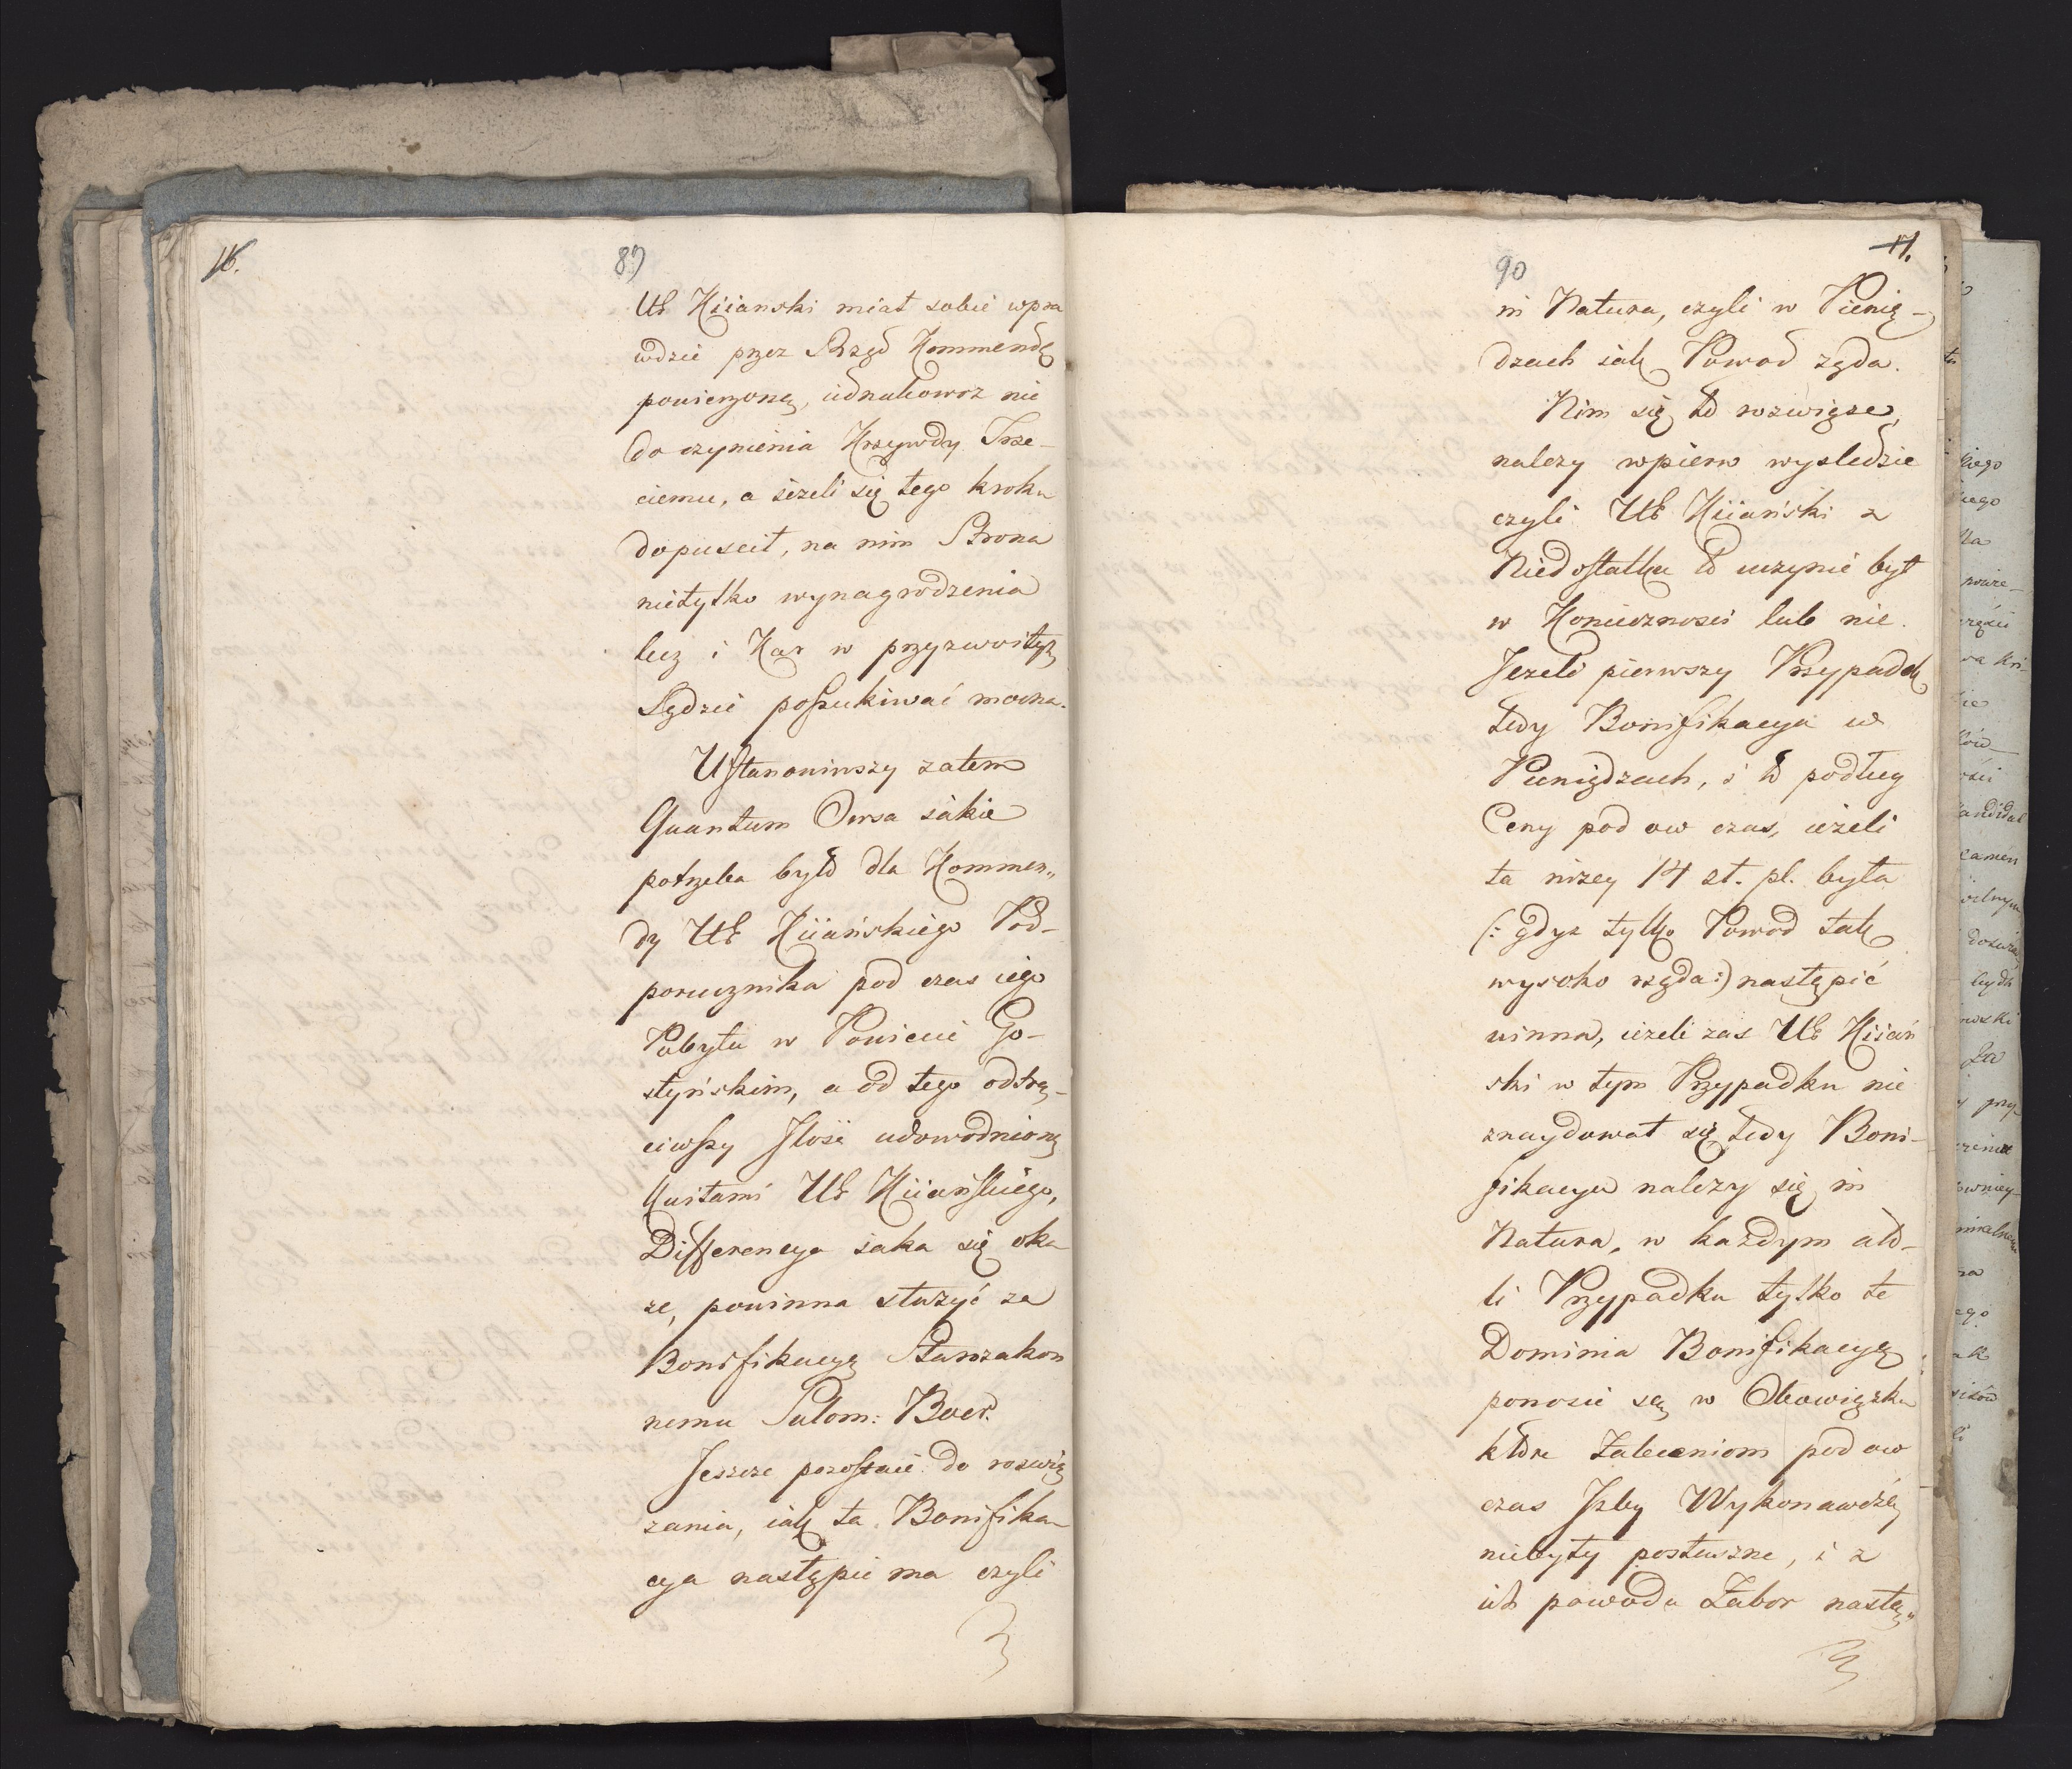 16.
89
Ur Kiianski miał sobie wpra
wdzie przez Rząd Kommendę
powierzoną, iednakowoz nie
do czynienia Krzywdy Trze-
ciemu, a iezeli się tego kroku
dopuscił, na nim Strona
nietylko wynagrodzenia
lecz i Kar w przyzwoitym
Sądzie poszukiwać mocna.
Ustanowiwszy zatem
Quantum Owsa iakie
potrzeba było dla Kommen„
dy Ur Kiiańskiego Pod-
porucznika pod czas iego
Pobytu w Powiecie Go-
styńskim, a od tego odtrą-
ciwszy Ilość udowodnioną
Kwitami Ur Kiiańskiego,
Differencya iaka się oka
ze, powinna służyć za
Bonifikacyą Starozakon
nemu Salom: Baer.
Jeszcze pozostaie do rozwią
zania, iak ta Bonifika-
cya nastąpić ma czyli
17.
90
in Natura, czyli w Pienią-
dzach iak Powod ząda.
Nim się to rozwiąze,
nalezy wpierw wysledzie
czyli Ur Kiiański z
Niedostatku to uczynić był
w Konieczności lub nie.
Jezeli pierwszy Przypadek
tedy Bonifikacya w
Pieniądzach, i to podług
Ceny pod ow czas, iezeli
ta nizey 14 zł. pl. była
(: gdyz tylko Powod tak
wysoko rząda :) nastąpić
winna, iezeli zas Ur Kiiań
ski w tym Przypadku nie
znaydował się, tedy Boni-
fikacya nalezy się in
Natura, w kazdym ato-
li Przypadku tylko te
Dominia Bonifikacyą
ponosić są w Obowiązku
które Zaleceniom pod ow
czas Izby Wykonawczéy
niebyły posłuszne, i z
ich powodu Zabor nastą„